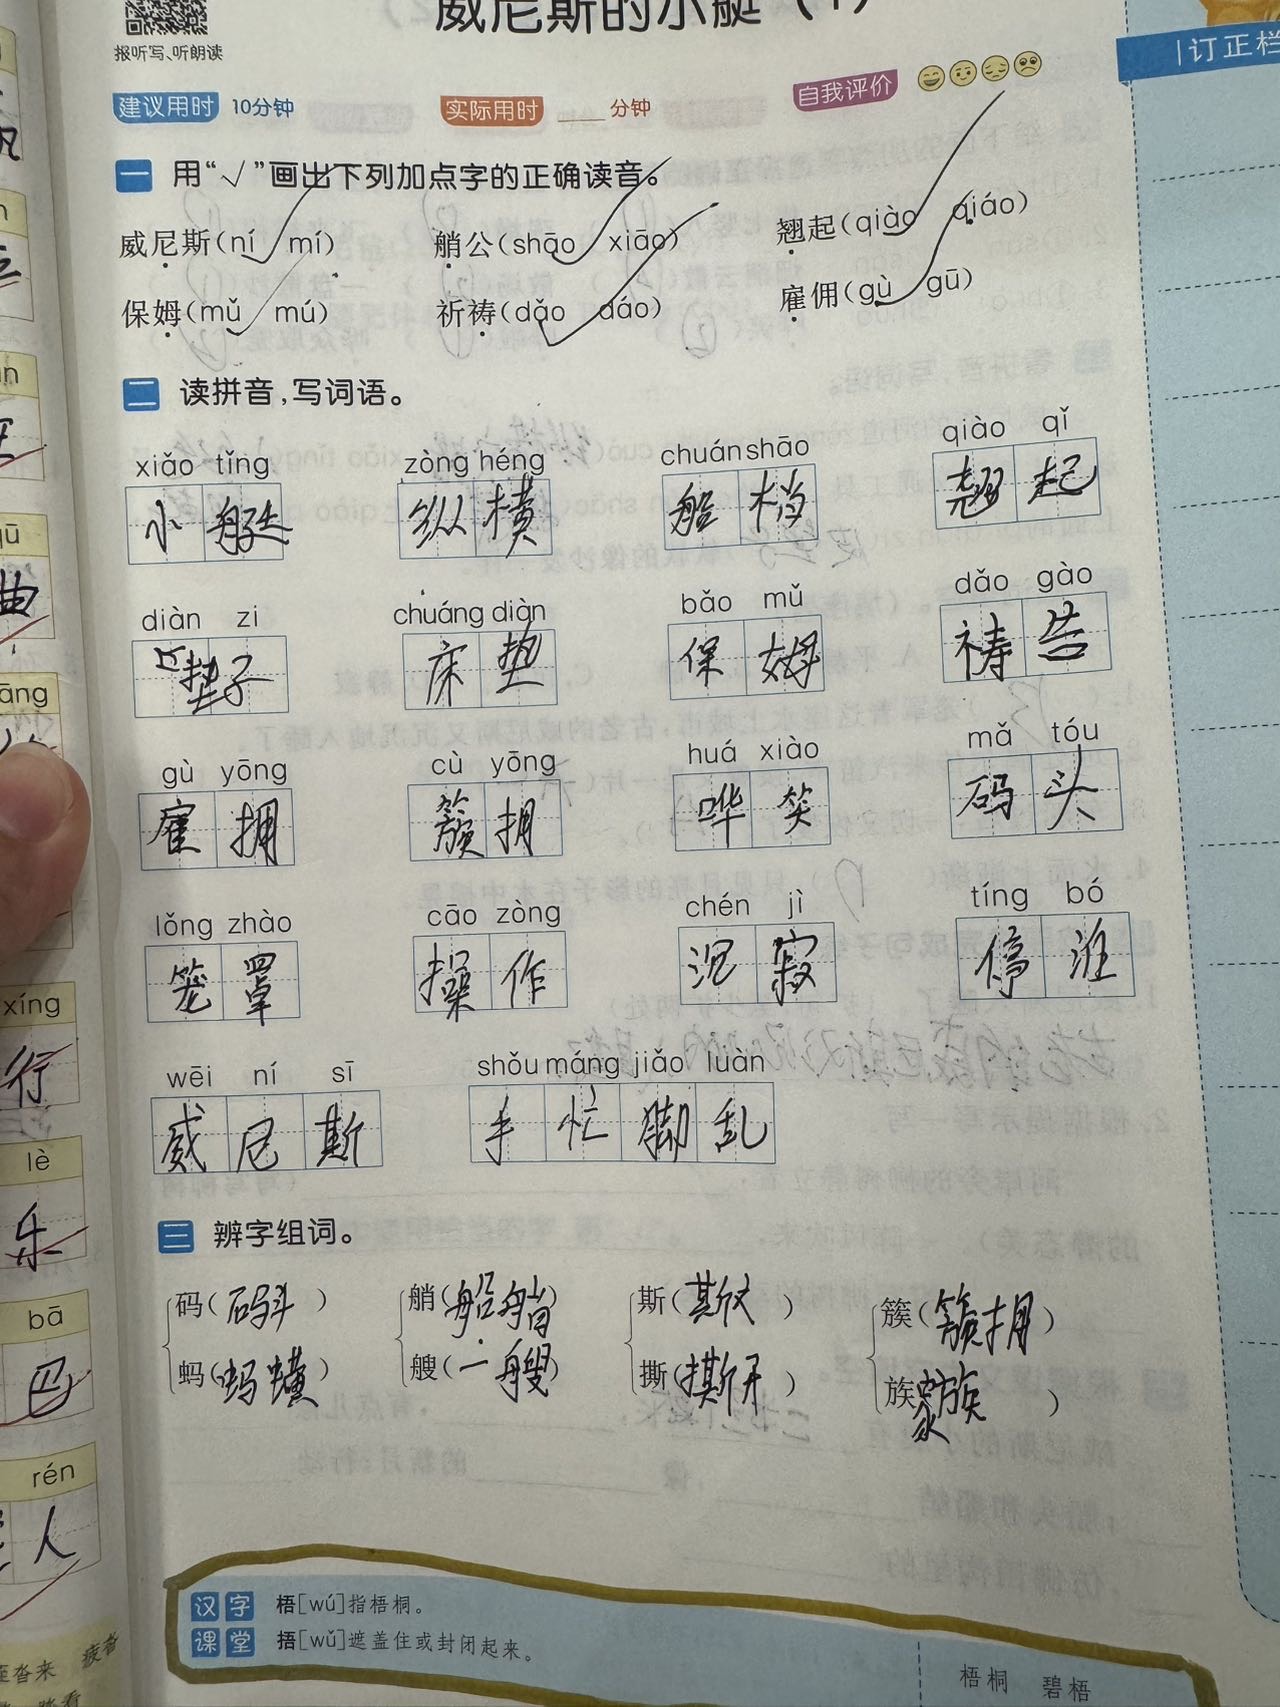 威尼斯的小艇（1）
报听写、听朗读
建议用时 10分钟 实际用时 ____ 分钟 自我评价
订正栏
一 用“√”画出下列加点字的正确读音。
威尼斯(ní mí) 艄公(shāo xiāo) 翘起(qiào qiáo)
保姆(mǔ mú) 祈祷(dǎo dáo) 雇佣(gù gū)
二 读拼音,写词语。
xiǎo tǐng zòng héng chuán shāo qiào qǐ
小艇 纵横 船档 翘起
diàn zi chuáng diàn bǎo mǔ dǎo gào
垫子 床垫 保姆 祷告
gù yōng cù yōng huá xiào mǎ tóu
雇拥 簇拥 哗笑 码头
lǒng zhào cāo zòng chén jì tíng bó
笼罩 操作 沉寂 停泊
wēi ní sī shǒu máng jiǎo luàn
威尼斯 手忙脚乱
三 辨字组词。
码(码斗) 艄(船艄) 斯(斯文) 簇(簇拥)
蚂(蚂蟥) 艘(一艘) 撕(撕开) 族(家族)
汉字 梧[wú]指梧桐。
课堂 捂[wǔ]遮盖住或封闭起来。
梧桐 碧梧
qū
曲
xíng
行
lè
乐
bā
巴
rén
人